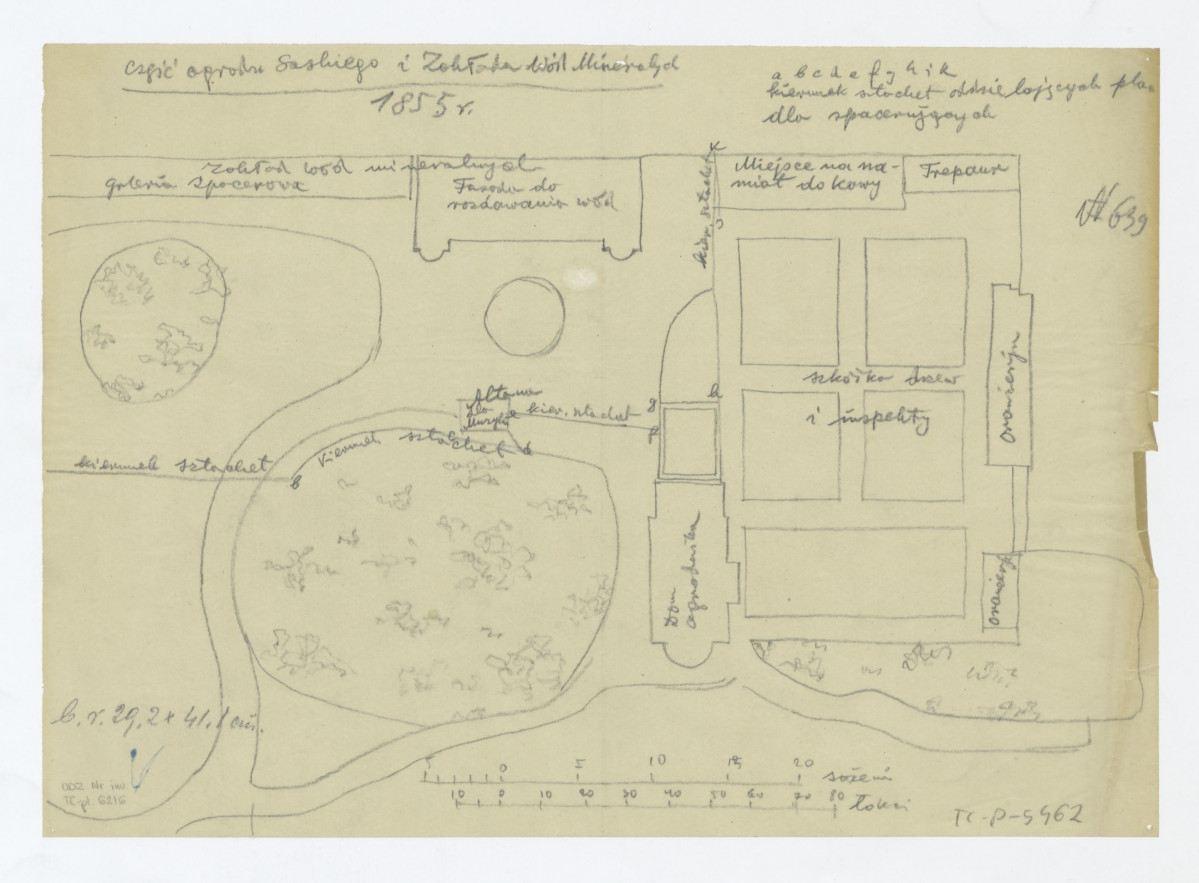 część ogrodu Saskiego i Zakładu Wód Mineralnych
1855 r.
a b c d e f g h i k
kierunek sztachet oddzielających plac
dla spacerujących
Zakład wód mineralnych
galeria spacerowa
Fasada do
rozdawania wód
kier. sztachet
k
Miejsce na na-
miot do kawy
Trephaus
N 639
oranżeryja
szkółka drzew
i inspekty
Altana
dla
Muzyki
e kier. sztachet
g
h
f
kierunek sztachet
b
kierunek sztachet d
Dom
ogrodnika
oranżeryja
b. r. 29,2 x 41,1 cm.
ODZ Nr inw.
TC-pl. 6216
5 0 5 10 15 20 sążeni
10 0 10 20 30 40 50 60 70 80 łokci
TC-P-5462